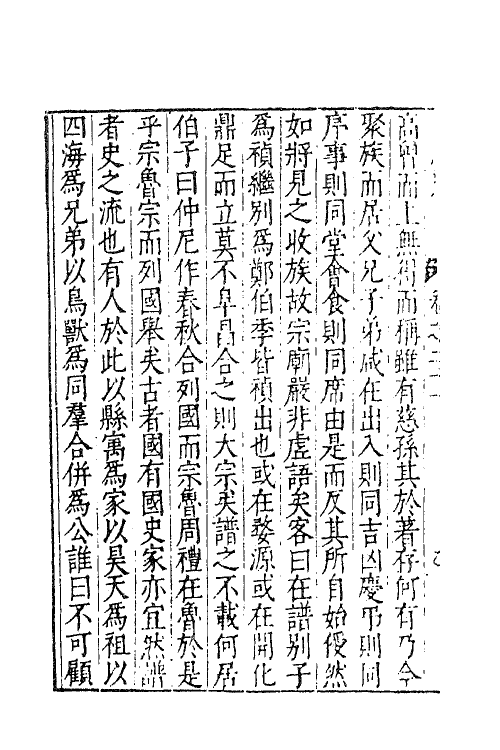 高曾而上無得而稱雖有慈孫其於著存何有乃今
聚族而居父兄子弟咸在出入則同吉凶慶弔則同
序事則同堂會食則同席由是而反其所自始優然
如將見之收族故宗廟嚴非虛語矣客曰在譜別子
爲禎繼別爲鄭伯季皆禎出也或在婺源或在開化
鼎足而立莫不阜昌合之則大宗矣譜之不載何居
伯子曰仲尼作春秋合列國而宗魯周禮在魯於是
乎宗魯宗而列國舉矣古者國有國史家亦宜然譜
者史之流也有人於此以縣寓爲家以昊天爲祖以
四海爲兄弟以鳥獸爲同羣合併爲公誰曰不可顧